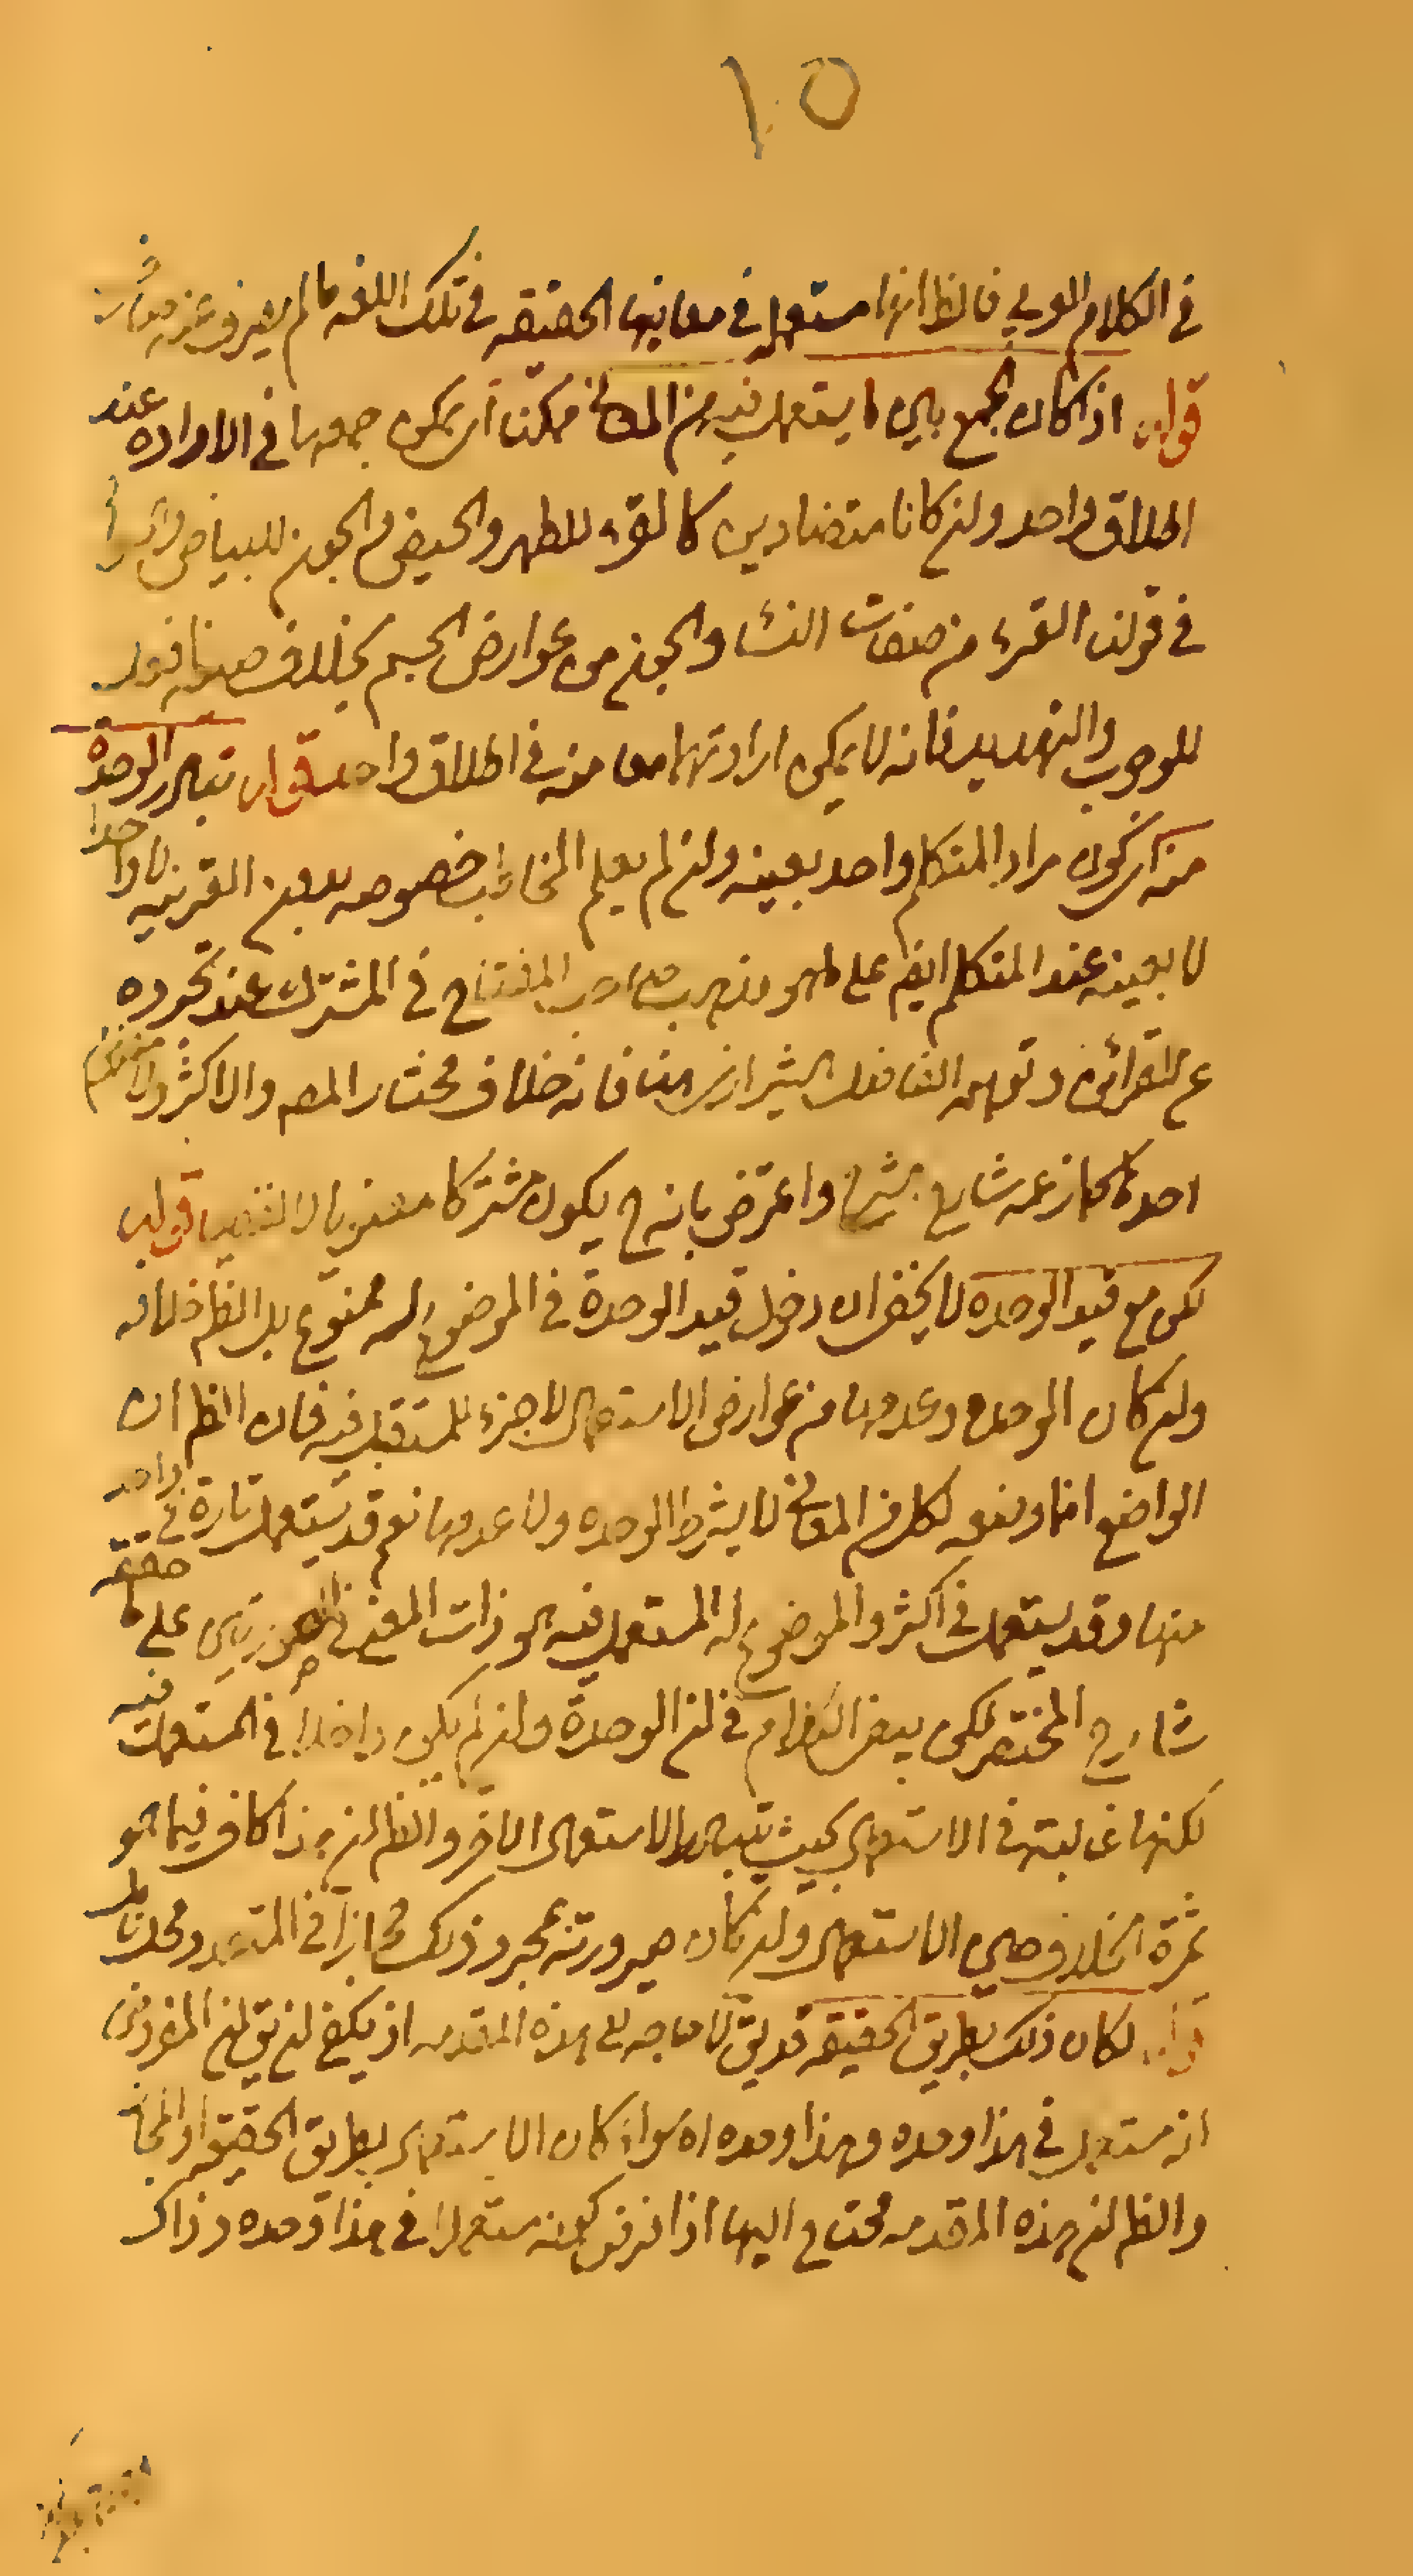 ١٠٥
في الكلام العربي فالظ انها مستعمله في معانيها الحقيقه في تلك اللغه ما لم يصرف عنه صارف
قوله اذا كان الجمع بين ما يستعمل فيه من المعاني ممكنا اى يمكن جمعها في الاراده عند
اطلاق واحد وان كانا متضادين كالقرء للطهر والحيض والجون للبياض والسواد
في قولنا القرء من صفات النساء والجون من عوارض الجسم بخلاف صيغه افعل
للوجوب والتهديد فانه لا يمكن ارادتهما معا منه في اطلاق واحد قوله تبادر الوحدة
منه اى كون مراد المتكلم واحد بعينه وان لم يعلم المخاطب خصوصه بدون القرينه لا واحدا
لا بعينه عند المتكلم ايضا على ما هو مذهب صاحب المفتاح في المشترك عند تجرده
عن القرائن وتوهمه الفاضل الشيرازي هنا فانه خلاف مختار المص والاكثر
احدهما كما زعمه شارح واعترض بانه ح يكون مشتركا معنويا لا لفظيا قوله
لكن مع قيد الوحده لا يخفى ان دخول قيد الوحدة في الموضوع له ممنوع بل الظ خلافه
وان كان الوحدة وعدمها من عوارض الاستعمال لا جزء للمستعمل فيه فان الظ ان
الواضع انما وضعه لكل من المعاني لا بشرط الوحده ولا عدمها نعم قد يستعمل تارة في واحد
منها وقد يستعمل في اكثر والموضوع له المستعمل فيه هو ذات المعنى في الصورتين على ما حققه
شارح المختصر لكن بعض الكلام في ان الوحدة وان لم يكن داخلا في المستعمل فيه
لكنها غالبة في الاستعمال بحيث يتبادر الاستعمال الاخر والظ ان هذا كاف فيما هو
ثمرة الخلاف حين الاستعمال وان كان صيرورته بمجرد ذلك مجازا في المتعدد محل تامل
قوله لكان ذلك بطريق الحقيقه قد يق لا حاجه الى هذه المقدمه اذ يكفي ان يق ان المفروض
انه مستعمل في هذا وحده وهذا وحده اه سواء كان الاستعمال بطريق الحقيقه او المجاز
والظ ان هذه المقدمه محتاج اليها اذا فرض كونه مستعملا في هذا وحده وذاك